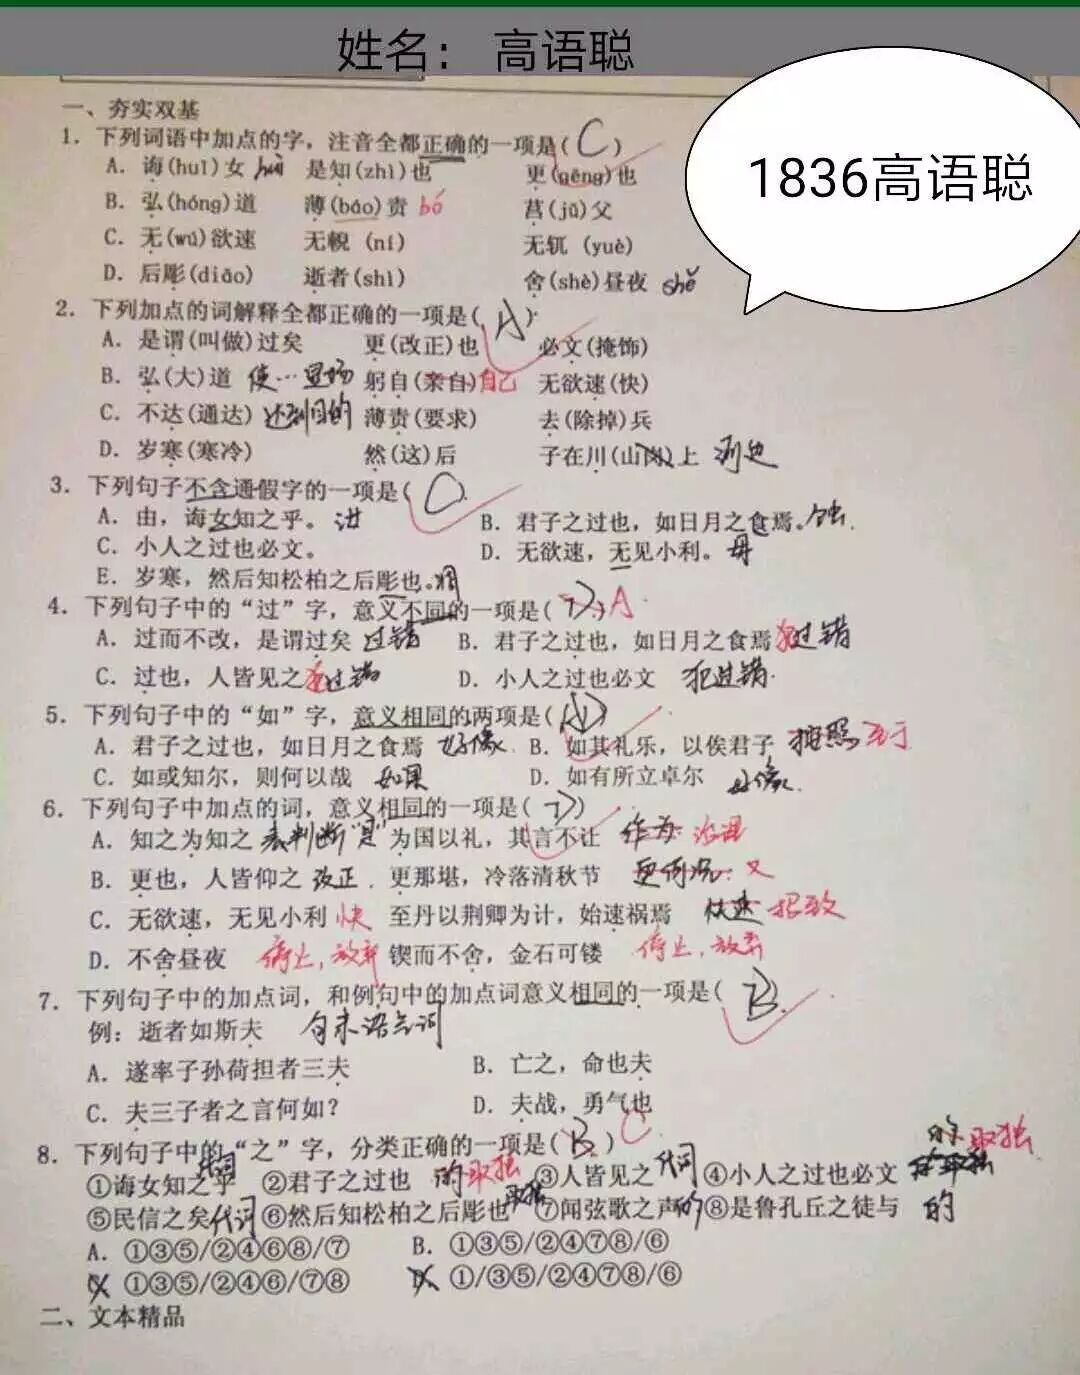 姓名： 高语聪
1836高语聪
一、夯实双基
1. 下列词语中加点的字，注音全都正确的一项是( C )
A. 诲(huǐ)女 huì 是知(zhì)也 更(gēng)也
B. 弘(hóng)道 薄(báo)责 bó 莒(jǔ)父
C. 无(wú)欲速 无輗 (ní) 无軏 (yuè)
D. 后彫(diāo) 逝者(shì) 舍(shè)昼夜 shě
2. 下列加点的词解释全都正确的一项是( A )
A. 是谓(叫做)过矣 更(改正)也 必文(掩饰)
B. 弘(大)道 使…显扬 躬自(亲自)自己 无欲速(快)
C. 不达(通达) 达到目的 薄责(要求) 去(除掉)兵
D. 岁寒(寒冷) 然(这)后 子在川(山川)上 河边
3. 下列句子不含通假字的一项是( C
A. 由，诲女知之乎。 汝 B. 君子之过也，如日月之食焉。蚀
C. 小人之过也必文。 D. 无欲速，无见小利。 毋
E. 岁寒，然后知松柏之后彫也。凋
4. 下列句子中的“过”字，意义不同的一项是( D )A
A. 过而不改，是谓过矣 过错 B. 君子之过也，如日月之食焉 犯过错
C. 过也，人皆见之 犯过错 D. 小人之过也必文 犯过错
5. 下列句子中的“如”字，意义相同的两项是( AD )
A. 君子之过也，如日月之食焉 好像 B. 如其礼乐，以俟君子 按照 至于
C. 如或知尔，则何以哉 如果 D. 如有所立卓尔 好像
6. 下列句子中加点的词，意义相同的一项是( D )
A. 知之为知之 表判断“是” 为国以礼，其言不让 作为 治理
B. 更也，人皆仰之 改正 更那堪，冷落清秋节 更何况 又
C. 无欲速，无见小利 快 至丹以荆卿为计，始速祸焉 快速 招致
D. 不舍昼夜 停止，放弃 锲而不舍，金石可镂 停止，放弃
7. 下列句子中的加点词，和例句中的加点词意义相同的一项是( B )
例：逝者如斯夫 句末语气词
A. 遂率子孙荷担者三夫 B. 亡之，命也夫
C. 夫三子者之言何如？ D. 夫战，勇气也
8. 下列句子中的“之”字，分类正确的一项是( B ) C
①诲女知之乎 代词 ②君子之过也 的 取独 ③人皆见之 代词 ④小人之过也必文 取独
⑤民信之矣 代词 ⑥然后知松柏之后彫也 取独 ⑦闻弦歌之声 的 ⑧是鲁孔丘之徒与 的
A. ①③⑤/②④⑥⑧/⑦ B. ①③⑤/②④⑦⑧/⑥
①③⑤/②④⑥/⑦⑧ ①/③⑤/②④⑦⑧/⑥
二、文本精品